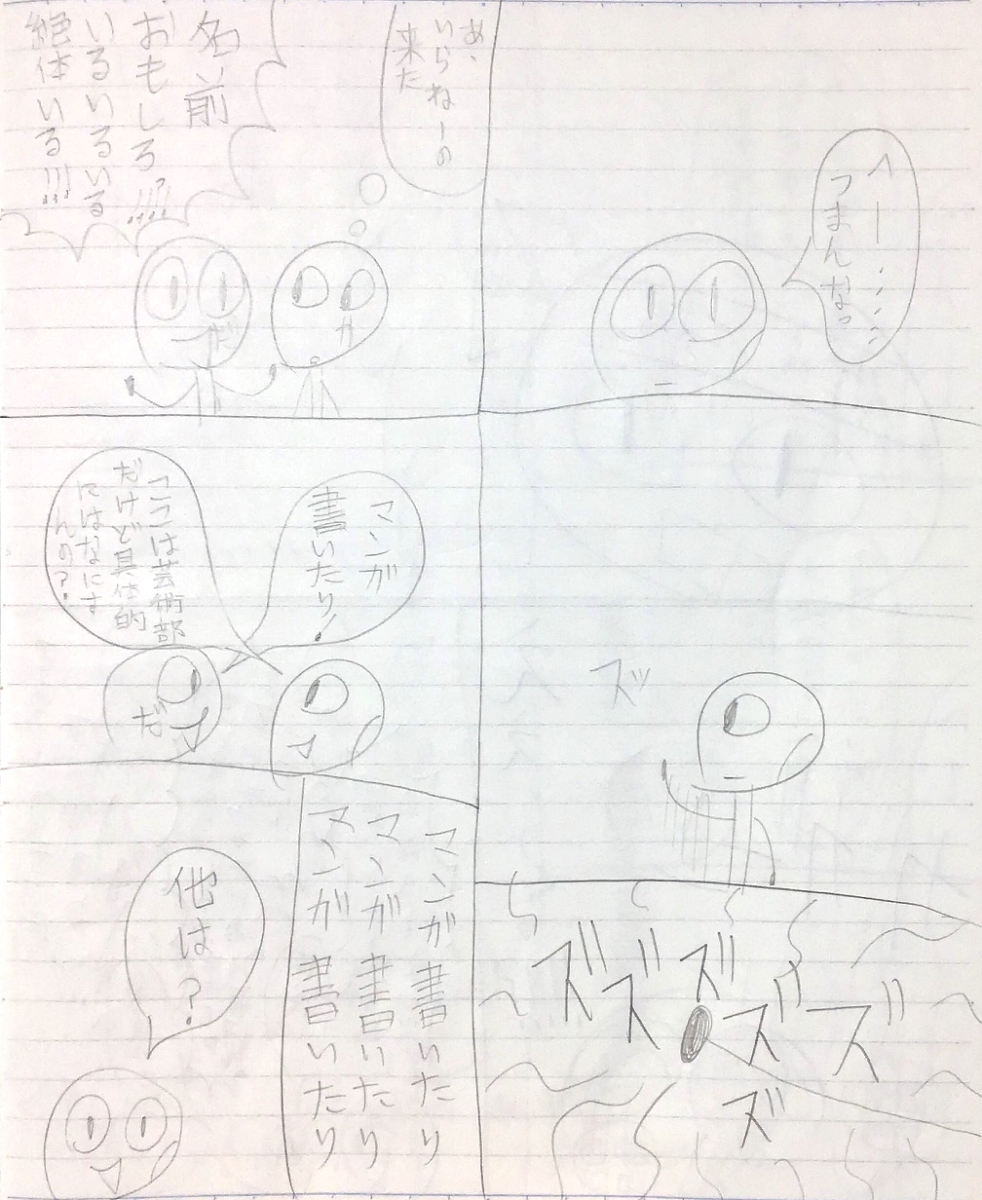 へー……
つまんなっ
ズッ
ズズズズズ
ズ
あ、
いらねーの
来た
名前
おもしろ!!!?
いるいるいる
絶体いる!!!
か
だ
マンガ
書いたり!
ココは芸術部
だけど具体的
にはなにす
んの?
だ
マンガ書いたり
マンガ書いたり
マンガ書いたり
他は?